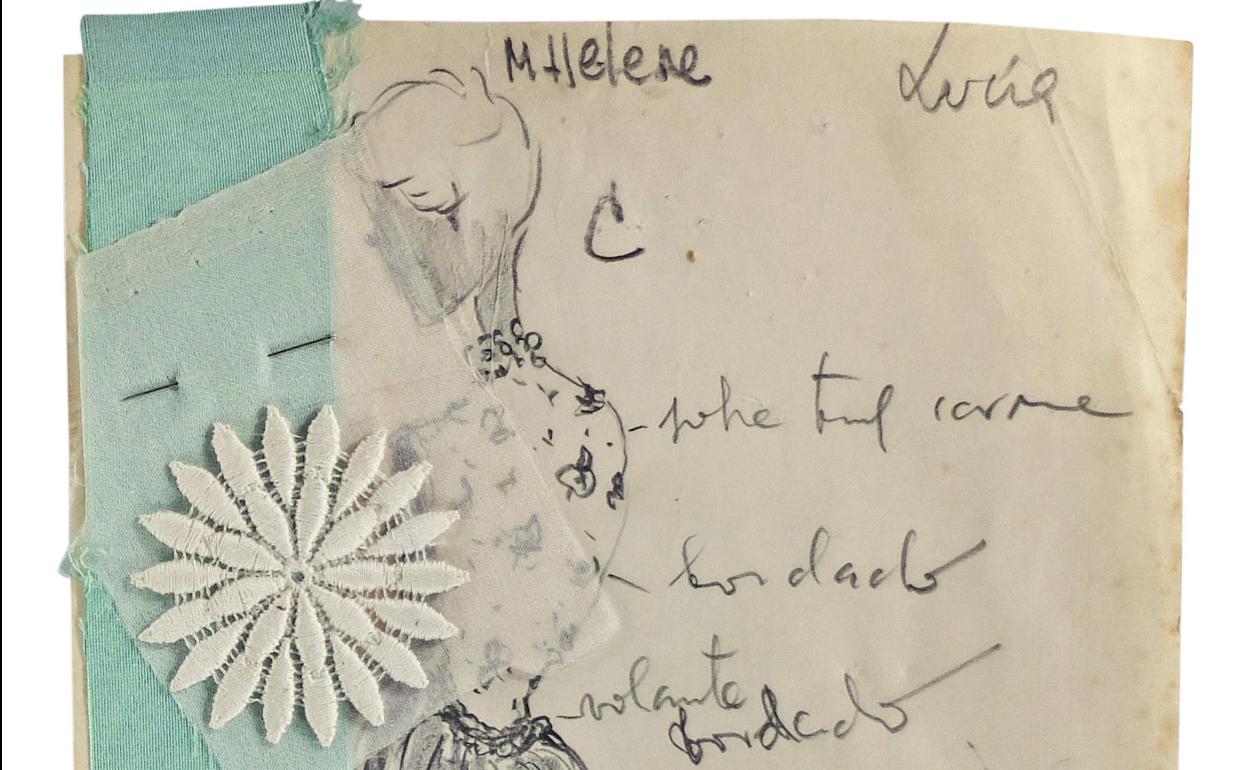 MHelene
Lucía
C
sobre tul carne
bordado
volante
bordado